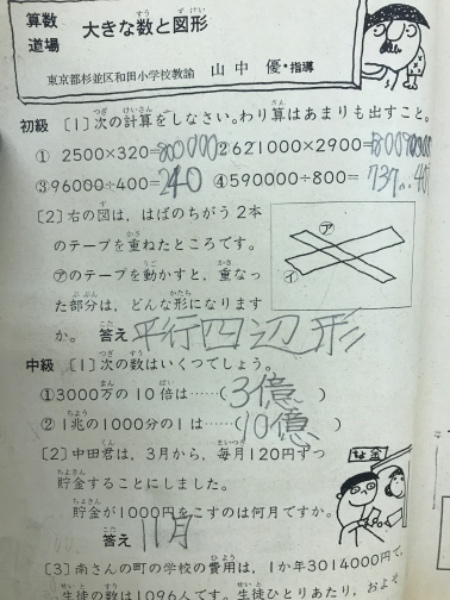 算数
道場
大きな数と図形
東京都杉並区和田小学校教諭 山中 優・指導
初級 〔1〕次の計算をしなさい。わり算はあまりも出すこと。
① 2500×320=800000 ② 621000×2900=
③ 96000÷400=240 ④ 590000÷800=737
〔2〕右の図は、はばのちがう2本
のテープを重ねたところです。
㋐のテープを動かすと、重なっ
た部分は、どんな形になります
か。 答え 平行四辺形
㋐
㋑
中級 〔1〕次の数はいくつでしょう。
①3000万の10倍は……(3億)
② 1兆の1000分の1は……(10億)
〔2〕中田君は、3月から、毎月120円ずつ
貯金することにしました。
貯金が1000円をこすのは何月ですか。
答え 11月
〔3〕南さんの町の学校の費用は、1か年3014000円で、
生徒の数は1096人です。生徒ひとりあたり、およそ